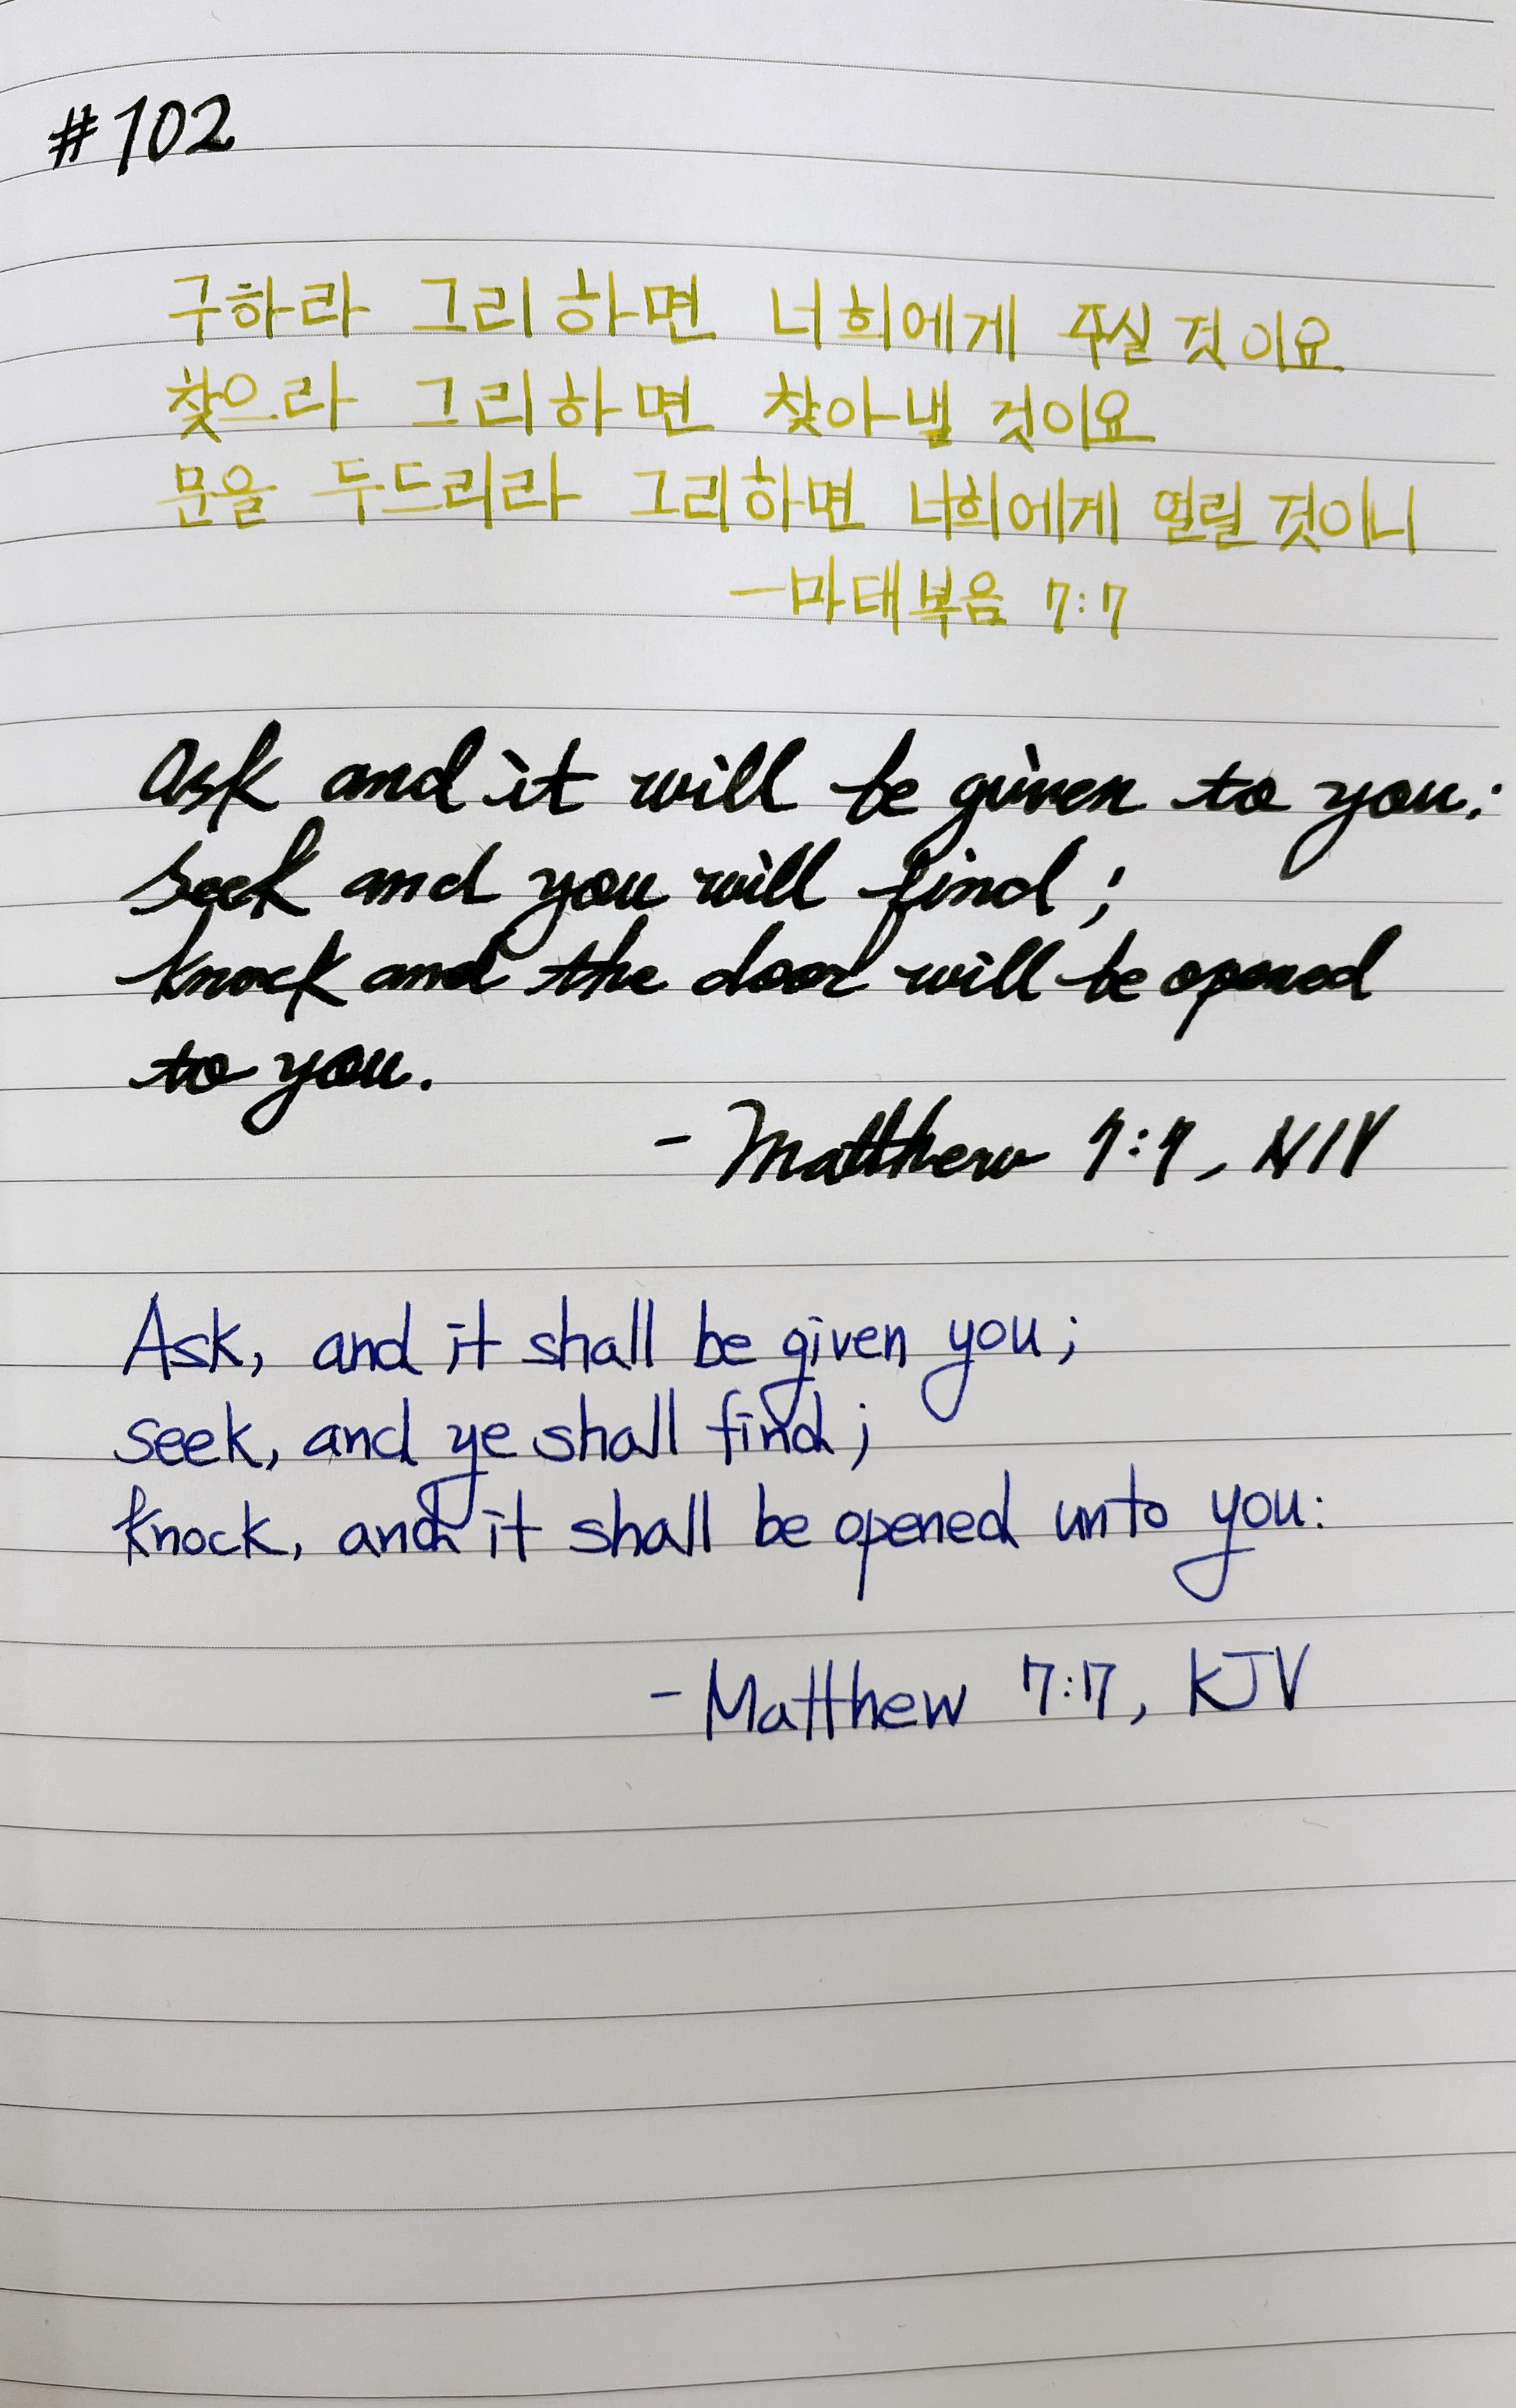 #102
구하라 그리하면 너희에게 주실 것이요
찾으라 그리하면 찾아낼 것이요
문을 두드리라 그리하면 너희에게 열릴 것이니
-마태복음 7:7
Ask and it will be given to you;
seek and you will find;
knock and the door will be opened
to you.
- Matthew 7:7, NIV
Ask, and it shall be given you;
seek, and ye shall find;
knock, and it shall be opened unto you:
- Matthew 7:7, KJV